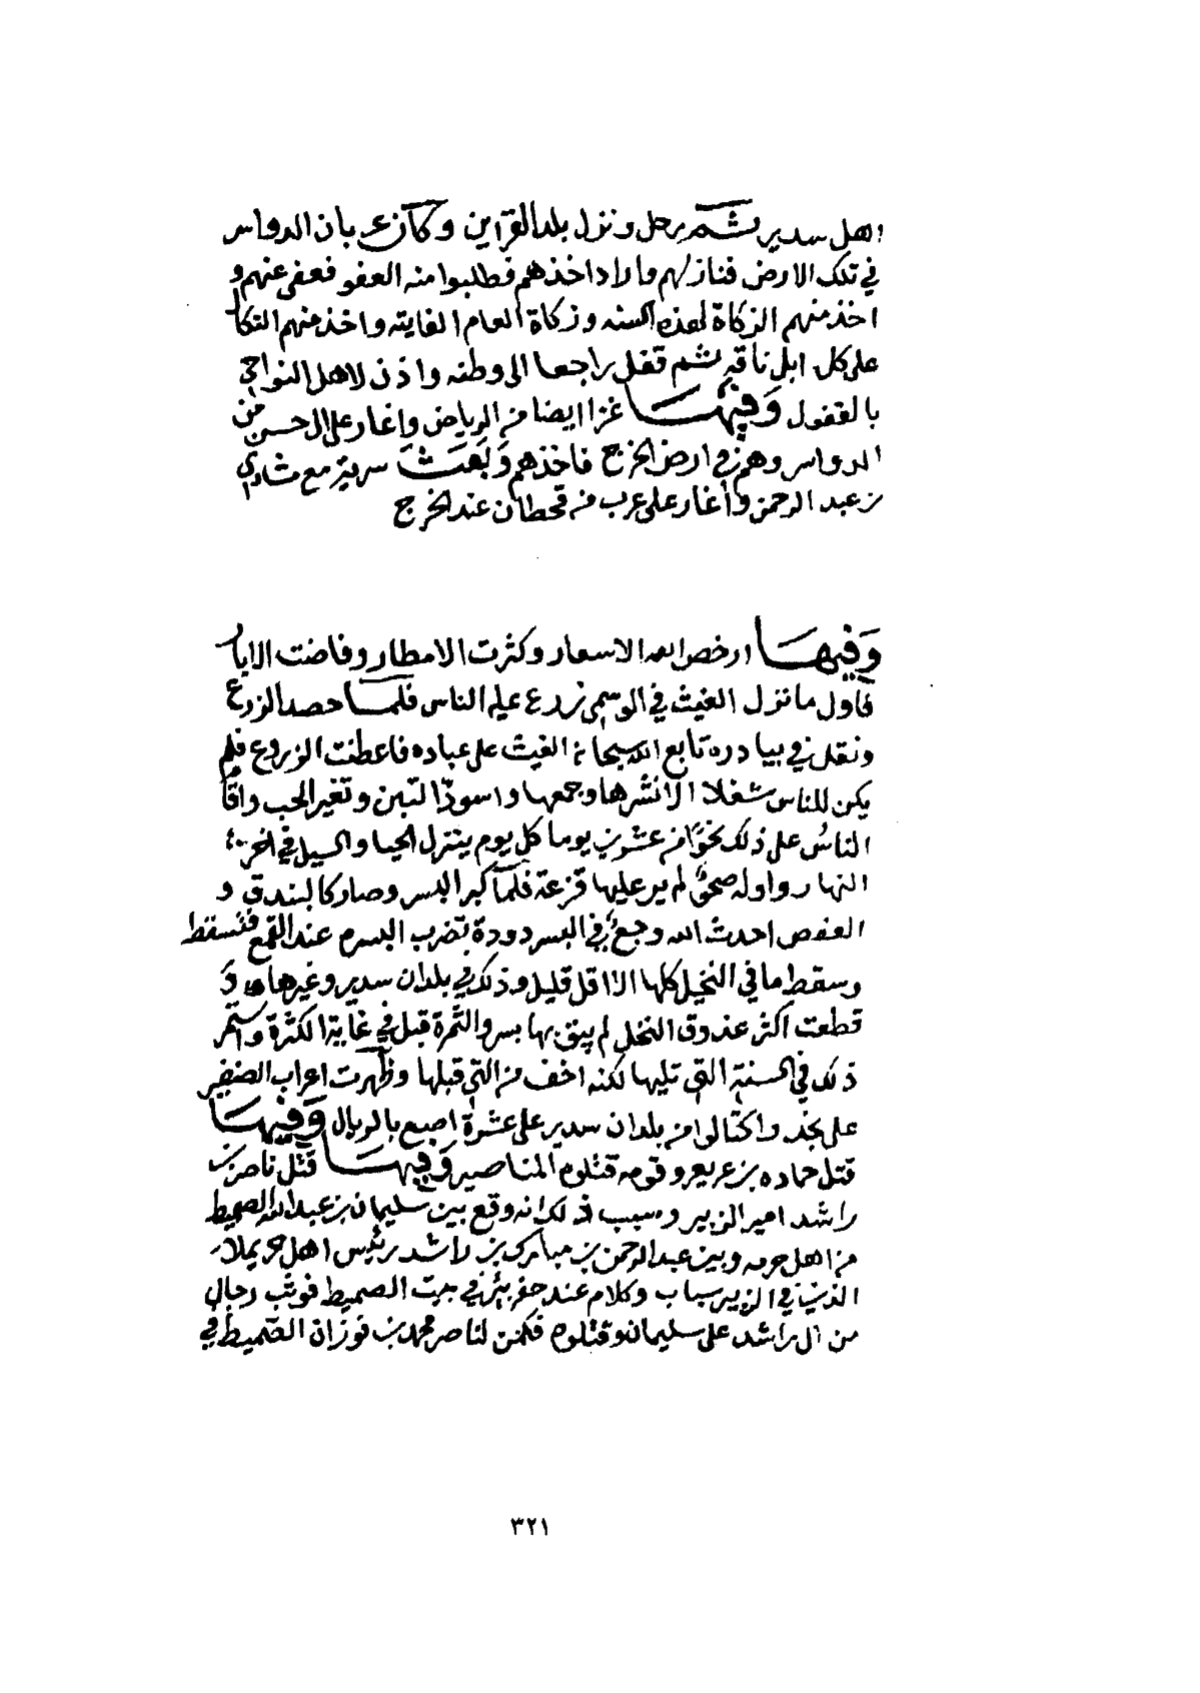 اهل سدير ثم رحل ونزل بلد القراين وكان عربان الدواسر
في تلك الارض فنازلهم واراد اخذهم فطلبوا منه العفو فعفى عنهم و
اخذ منهم الزكاة لهذه السنه وزكاة العام الفايته واخذ منهم النكال
على كل ابل ناقه ثم قفل راجعا الى وطنه واذن لاهل النواحي
بالقفول وفيها غزا ايضا من الرياض واغار على ال حسن من
الدواسر وهم في ارض الخرج فاخذهم وبعث سرية مع شادي
بن عبد الرحمن واغار على عرب من قحطان عند الخرج
وفيها ارخص الله الاسعار وكثرت الامطار وفاضت الابار
فاول ما نزل الغيث في الوسمي زرع عليه الناس فلما حصد الزرع
ونقل في بيادره تابع الله سبحانه الغيث على عباده فاعطنت الزروع فلم
يكن للناس شغلا الا نشرها وجمعها واسود التبن وتغير الحب واقام
الناس على ذلك نحوا من عشرين يوما كل يوم ينزل الحيا والسيل في اخر
النهار واوله صحو لم ير عليها قزعة فلما كبر البسر وصار كالبندق و
العفص احدث الله وجع في البسر دودة تضرب البسر عند القمع فتسقط
وسقط ما في النخيل كلها الا اقل قليل وذلك في بلدان سدير وغيرها و
قطعت اكثر عذوق النخل لم يبق بها بسر والثمرة قبل في غاية الكثرة واستمر
ذلك في السنة التي تليها لكنه اخف من التي قبلها وظهرت اعراب الضفير
على نجد واكتالوا من بلدان سدير على عشرة اصع بالريال وفيها
قتل حماده بن عريعر وقومه قتلوه المناصير وفيها قتل ناصر بن
راشد امير الزبير وسبب ذلك انه وقع بين سليمان بن عبد الله الصميط
من اهل حرمه وبين عبد الرحمن بن مبارك بن راشد رئيس اهل حريملا
الذين في الزبير سباب وكلام عند حفر بئر في بيت الصميط فوثب رجال
من ال راشد على سليمان وقتلوه فكمن لناصر محمد بن فوزان الصميط في
٣٢١